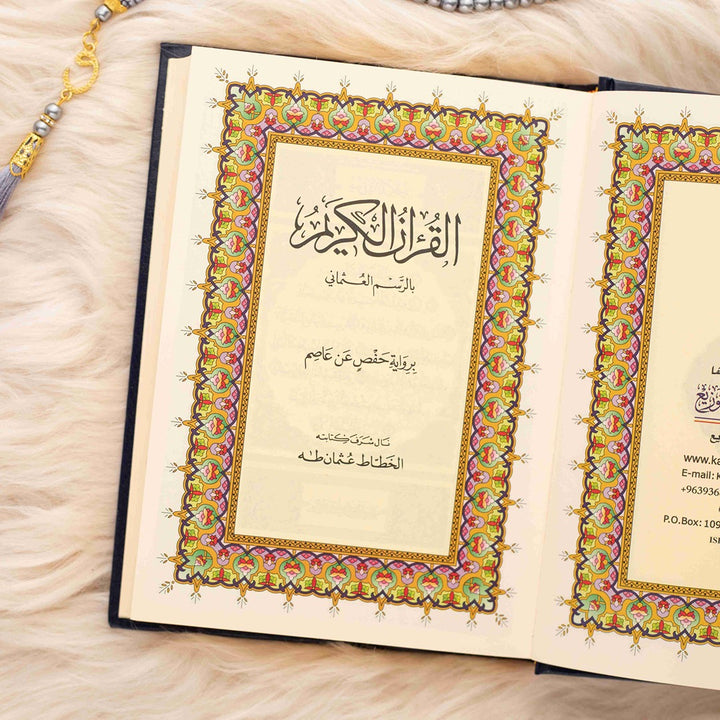 القرءان الكريم
بالرَّسم العُثماني
بِرِوَايَةِ حَفْصٍ عَن عَاصِم
نال شرف كتابته
الخطاط عُثمان طه
www.ka
E-mail: K
+963936
P.O.Box: 109